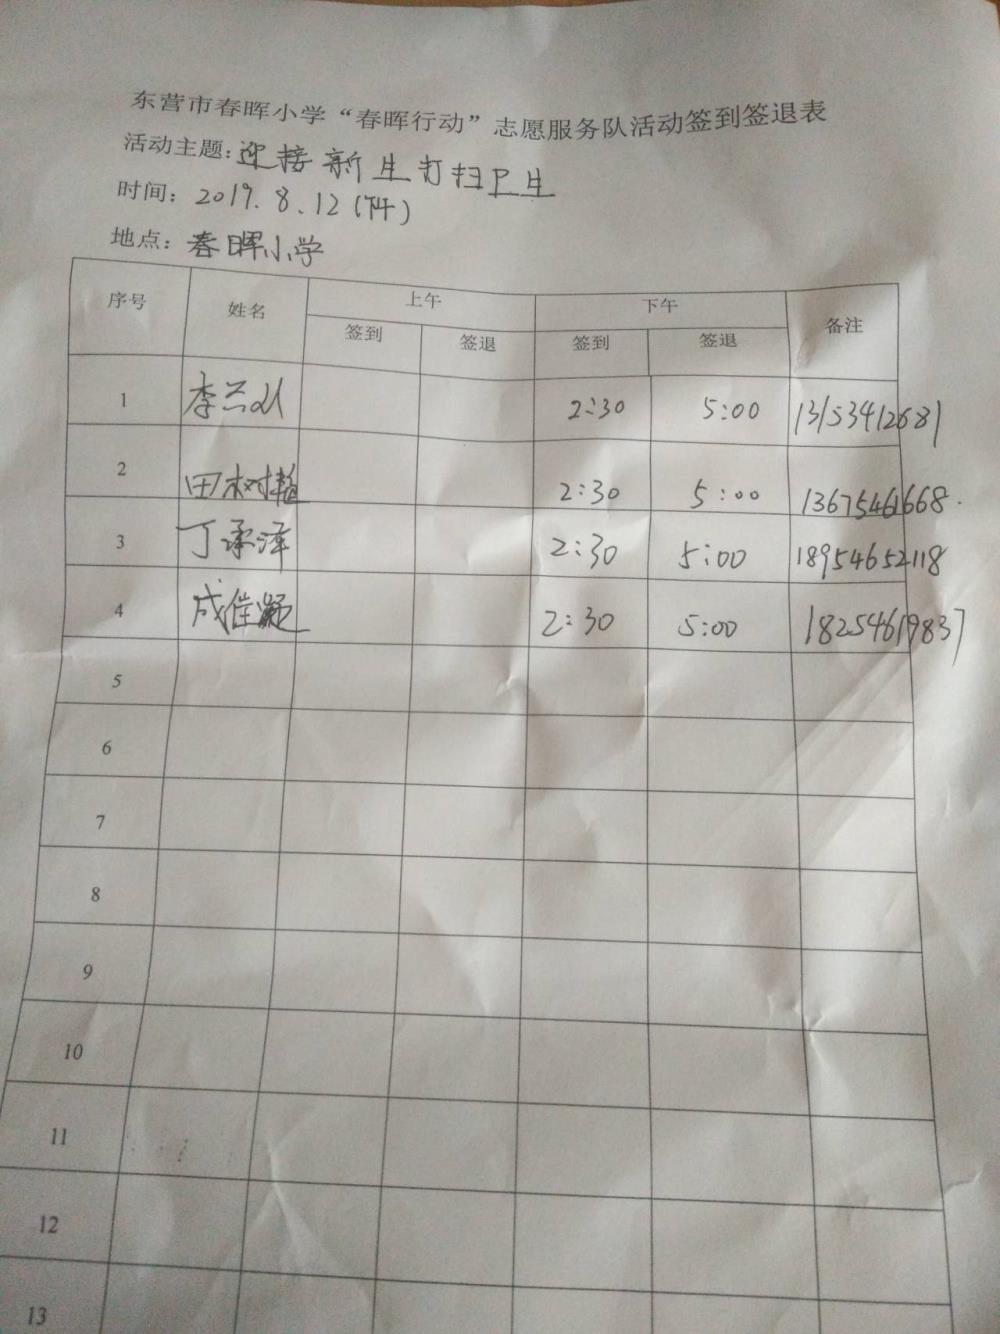 东营市春晖小学“春晖行动”志愿服务队活动签到签退表
活动主题：迎接新生打扫卫生
时间：2019.8.12(下午)
地点：春晖小学
序号 姓名 上午 下午 备注
签到 签退 签到 签退
1 李 2:30 5:00 13153412681
2 田树 2:30 5:00 13675461668.
3 丁承泽 2:30 5:00 18954652118
4 成佳凝 2:30 5:00 18254619837
5
6
7
8
9
10
11
12
13